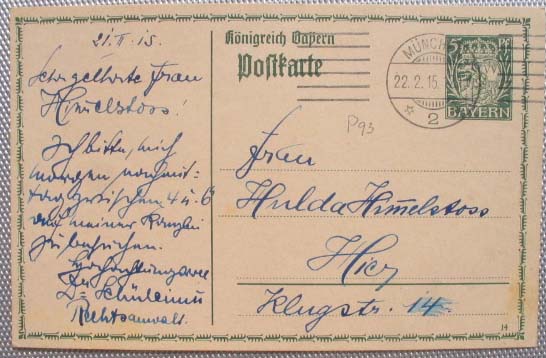 21.II.15.
Sehr geehrte Frau
Himelstoss!
Ich bitte, mich
morgen nachmit-
tag zwischen 4 u. 6
auf meiner Kanzlei
zu besuchen.
Hochachtungsvoll
Rechtsanwalt.
Königreich Bayern
Postkarte
MÜNCH
22.2.15.
2
5 Pf
BAYERN
P93
Frau
Hulda Himelstoss
Hier
Klugstr. 14
14